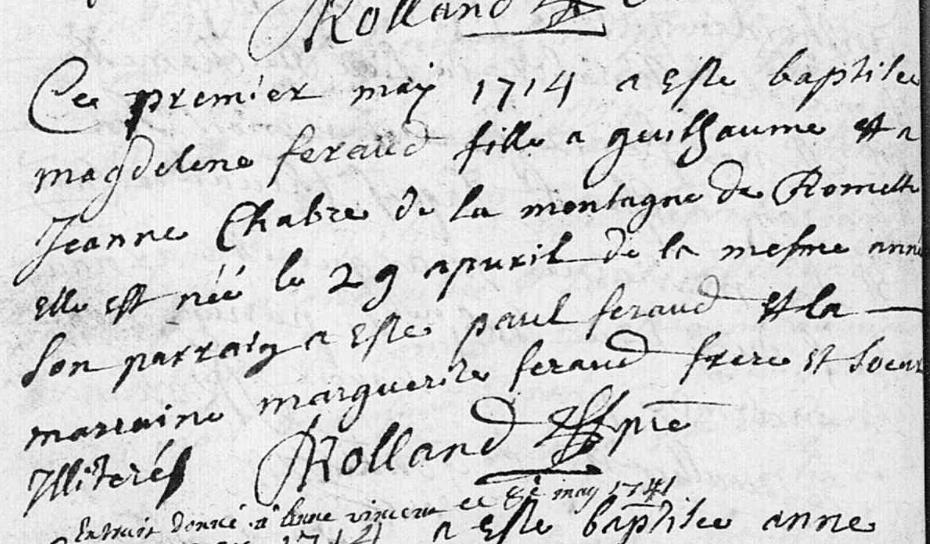 Rolland
Ce premier may 1714 a este baptisee
magdelene feraud fille a guilhaume et a
Jeanne Chabre de la montagne de Romette
elle est née le 29 apvril de la mesme anne
son parraig a este paul feraud et la
marraine marguerite feraud frere et soeur
Illiterés Rolland ptre
Extrait donné a vincent ce 8e may 1741
1714 a este baptisee anne